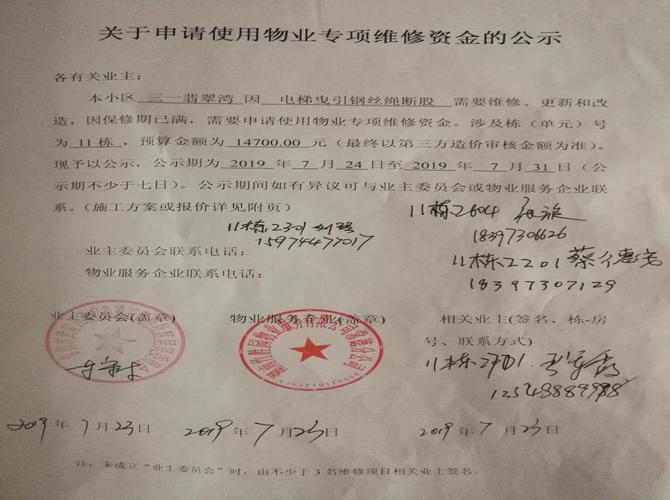 关于申请使用物业专项维修资金的公示
各有关业主：
本小区 三一翡翠湾 因 电梯曳引钢丝绳断股 需要维修、更新和改
造，因保修期已满，需要申请使用物业专项维修资金。涉及栋（单元）号
为 11 栋 ，预算金额为 14700.00 元（最终以第三方造价审核金额为准）。
现予以公示，公示期为 2019 年 7 月 24 日至 2019 年 7 月 31 日（公
示期不少于七日）。公示期间如有异议可与业主委员会或物业服务企业联
系。（施工方案或报价详见附页）
11栋2604
18397306626
11栋2301
15974477017
业主委员会联系电话：
11栋2201 蔡德
18397307129
物业服务企业联系电话：
业主委员会(盖章)
物业服务企业(盖章)
相关业主(签名、栋-房
号、联系方式)
11栋2701
2019年7月23日
2019年7月23日
2019年7月23日
注：未成立“业主委员会”时，由不少于3名维修项目相关业主签名。